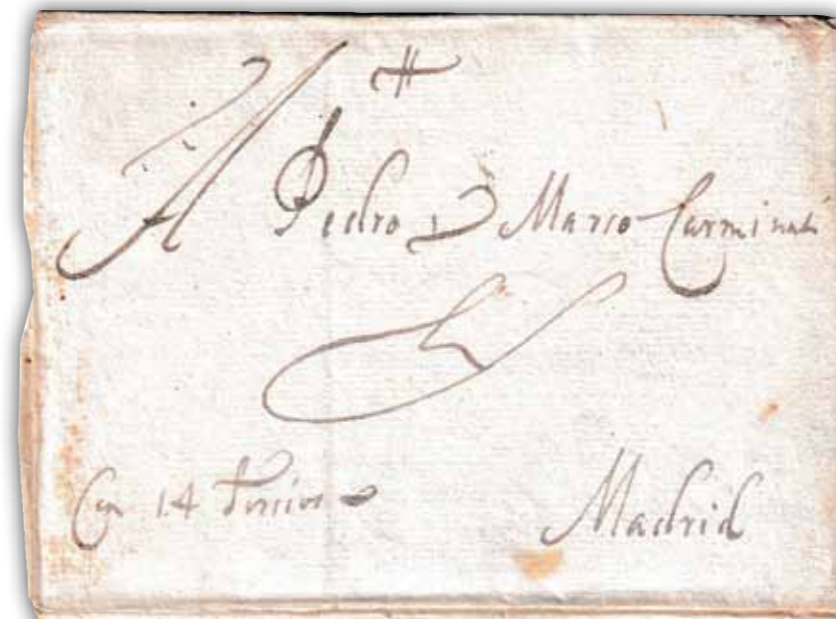 A Pedro y Marco Carminati
Con 14 tercios
Madrid